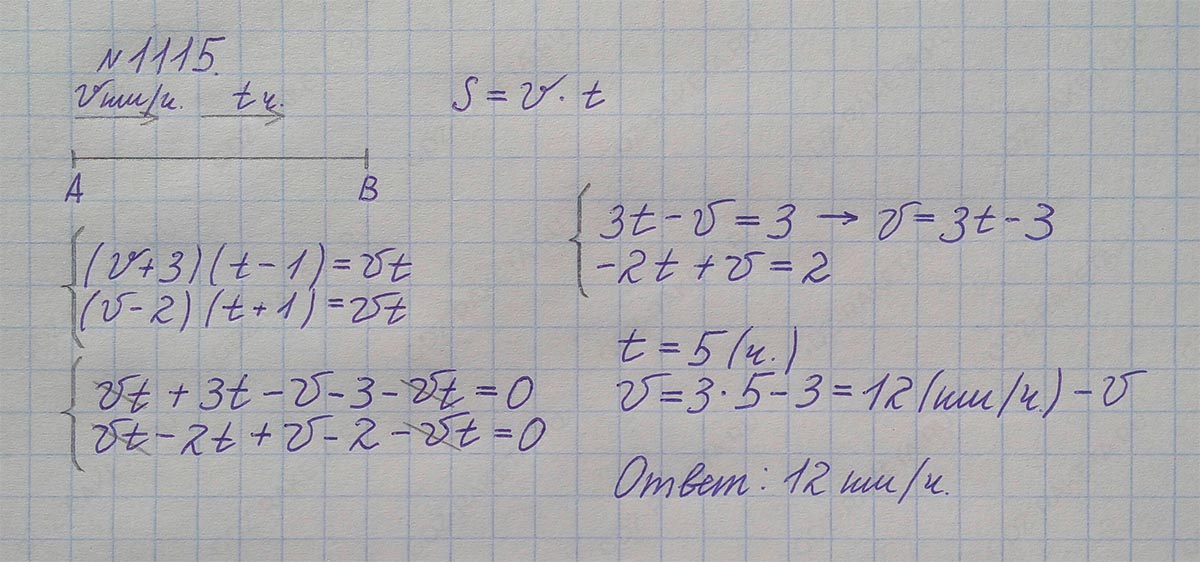 N 1115.
v км/ч. t ч.
S = v · t
A B
(v+3)(t-1)=vt
(v-2)(t+1)=vt
vt + 3t - v - 3 - vt = 0
vt - 2t + v - 2 - vt = 0
3t - v = 3 → v = 3t - 3
-2t + v = 2
t = 5 (ч.)
v = 3·5 - 3 = 12 (км/ч) - v
Ответ: 12 км/ч.